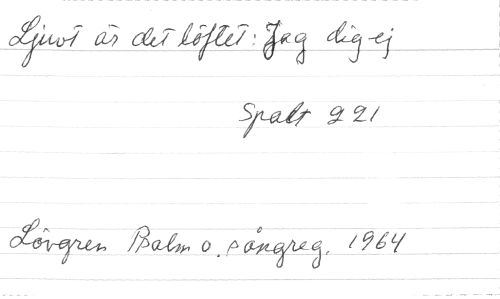 Ljuvt är det löftet: Jag dig ej
Spalt 221
Lövgren Psalm o. sångreg. 1964